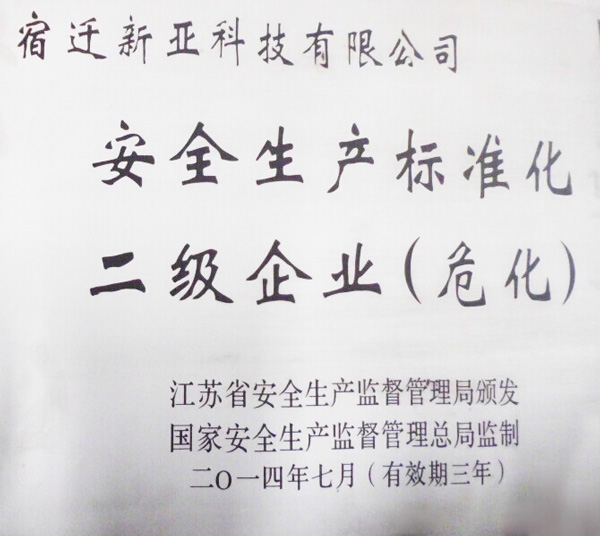 宿迁新亚科技有限公司
安全生产标准化
二级企业(危化)
江苏省安全生产监督管理局颁发
国家安全生产监督管理总局监制
二O一四年七月(有效期三年)